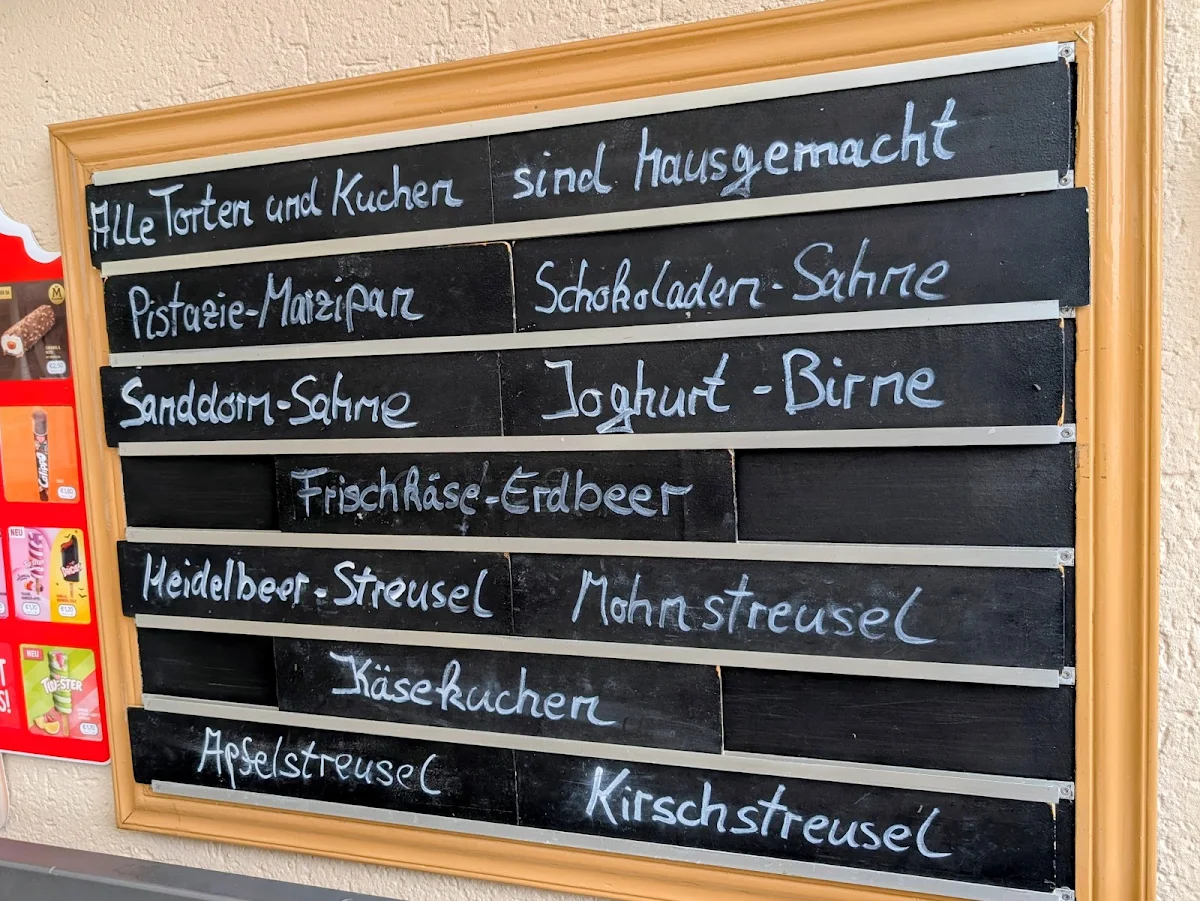 Alle Torten und Kuchen sind hausgemacht
Pistazie-Marzipan Schokoladen-Sahne
Sanddorn-Sahne Joghurt-Birne
Frischkäse-Erdbeer
Heidelbeer-Streusel Mohnstreusel
Käsekuchen
Apfelstreusel Kirschstreusel
NEU
NEU
TWISTER